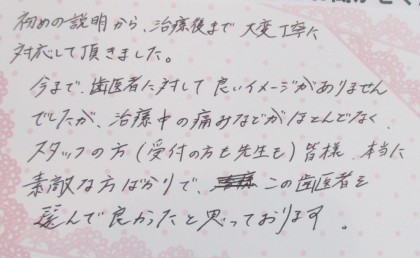 初めの説明から、治療後まで大変丁寧に
対応して頂きました。
今まで、歯医者に対して良いイメージがありません
でしたが、治療中の痛みなどがほとんどなく、
スタッフの方(受付の方も先生も)皆様、本当に
素敵な方ばかりで、この歯医者を
選んで良かったと思っております。